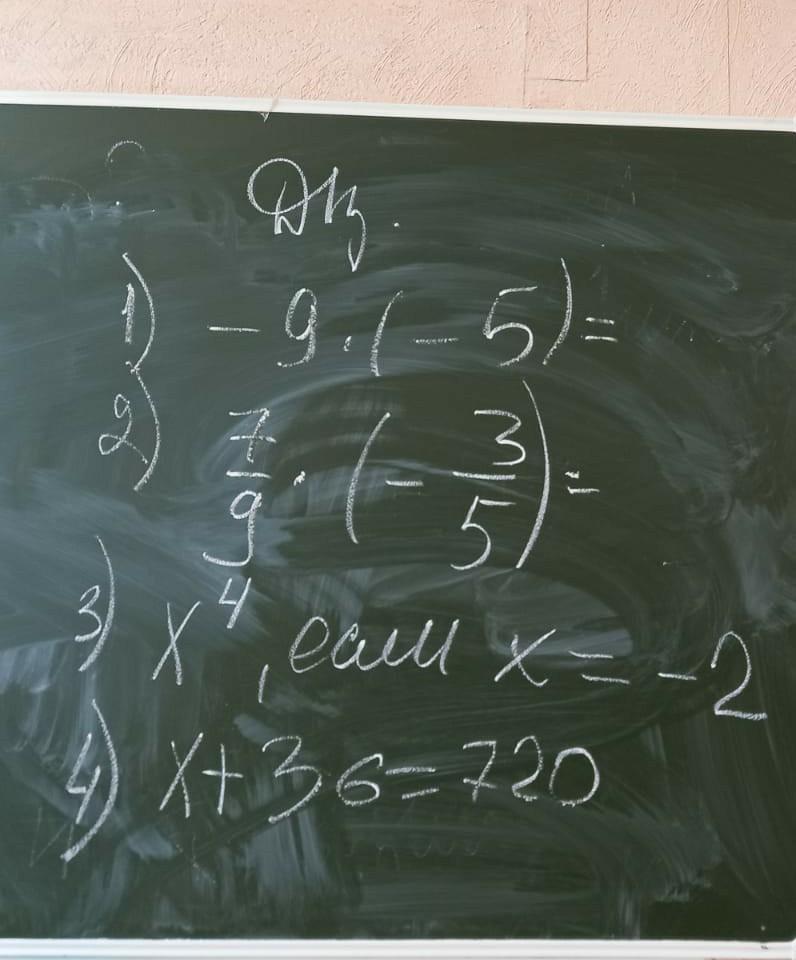 Дз.
1) - 9 · ( - 5 ) =
2) 7/9 · ( - 3/5 ) =
3) x⁴, если x = - 2
4) x + 36 = 720